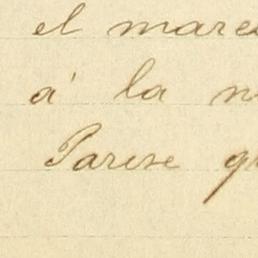 el mare
á la
Parese